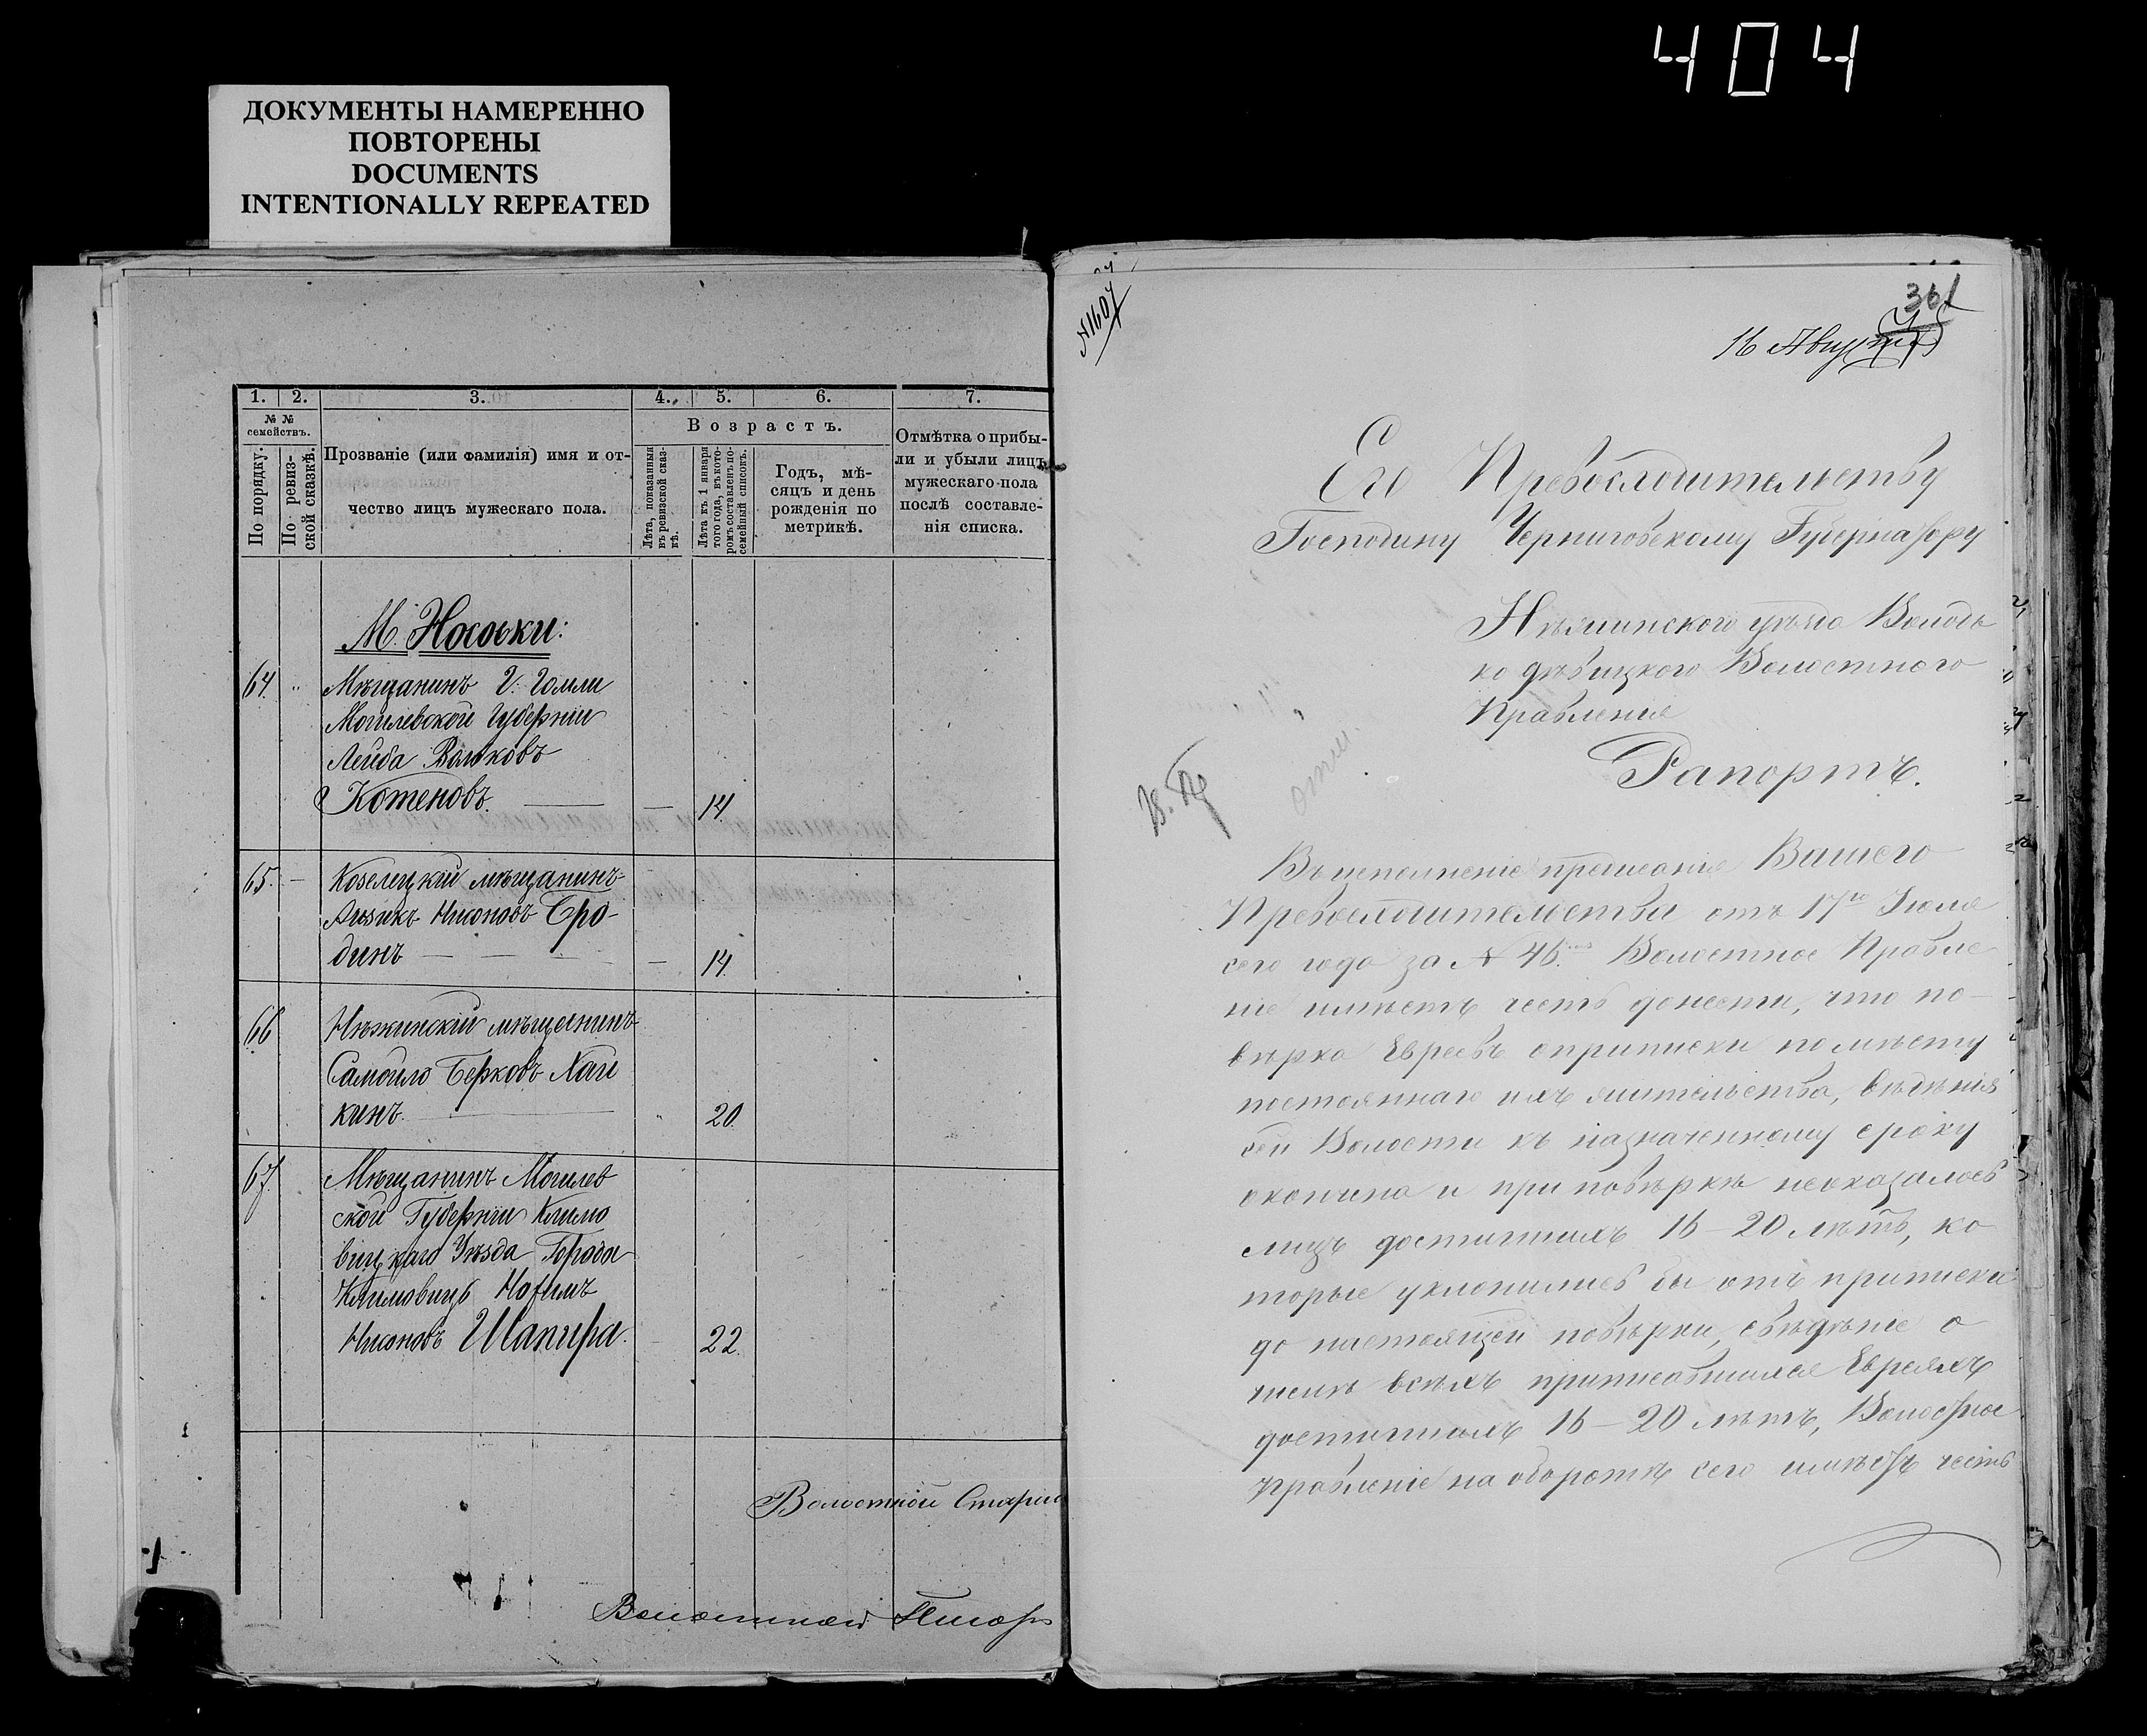 404
ДОКУМЕНТЫ НАМЕРЕННО
ПОВТОРЕНЫ
DOCUMENTS
INTENTIONALLY REPEATED
1. 2. 3. 4. 5. 6. 7.
№ №
семействъ.
По порядку.
По ревиз-
ской сказкѣ.
Прозваніе (или фамилія) имя и от-
чество лицъ мужескаго пола.
Возрастъ.
Лѣта, показанныя
въ ревизской сказ-
кѣ.
Лѣта къ 1 января
того года, въ кото-
ромъ составленъ по-
семейный списокъ.
Годъ, мѣ-
сяцъ и день
рожденія по
метрикѣ.
Отмѣтка о прибы-
ли и убыли лицъ
мужескаго пола
послѣ составле-
нія списка.
М. Носовки:
64. Мѣщанинъ г. Гомли
Могилевской Губерніи
Лейба Вольковъ
Котеновъ 14
65. Козелецкій мѣщанинъ
Аизикъ Нисоновъ Бро-
динъ 14
66 Нѣжинскій мѣщанинъ
Самойло Берковъ Хаи
кинъ 20
67. Мѣщанинъ Могилев
ской Губерніи Климо
вицкаго Уѣзда Города
Климовичь Нохимъ
Нисоновъ Шапира 22
Волостной Старши
Волостной Писарь
№ 1607
361
16 Августа
Его Превосходительству
Господину Черниговскому Губернатору
Нѣжинского уѣзда Володь
ко дѣвицкого Волостного
Правленія
Рапортъ.
Въ исполненіе предписанія Вашего
Превосходительства отъ 17го Іюля
сего года за № 46. Волостное Правле
ніе имѣетъ честь донести, что по-
вѣрка Евреевъ о приписки по мѣсту
постояннаго ихъ жительства, вѣденія
сей Волости къ назначенному сроку
окончена и при повѣркѣ неоказалось
лицъ достигшихъ 16-20 лѣтъ, ко
торые уклонились бы отъ приписки
до настоящей повѣрки, свѣдѣніе о
числѣ всѣхъ приписавшихся Евреяхъ
достигшихъ 16-20 лѣтъ, Волостное
правленіе на оборотѣ сего имѣетъ честь